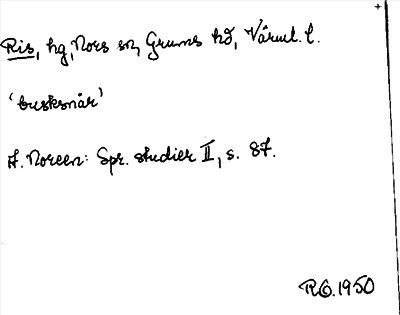 Ris, hg, Nors sn, Grums hd, Värml. l.
'busksnår'
A. Noreen: Spr. studier II, s. 87.
RO. 1950